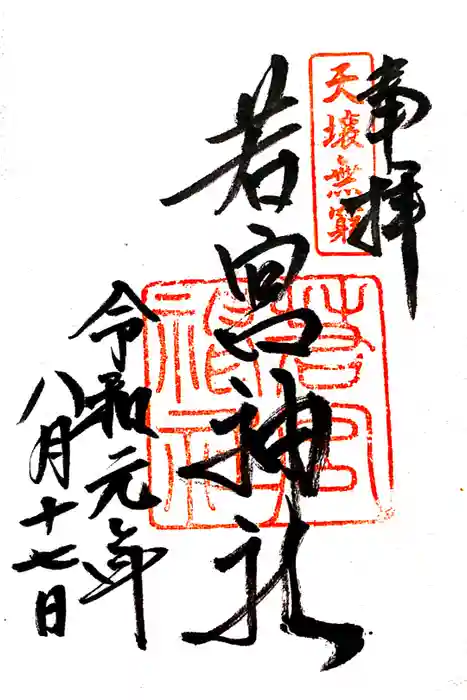 奉拝
天壌無窮
若宮神社
若宮神社
令和元年
八月十七日